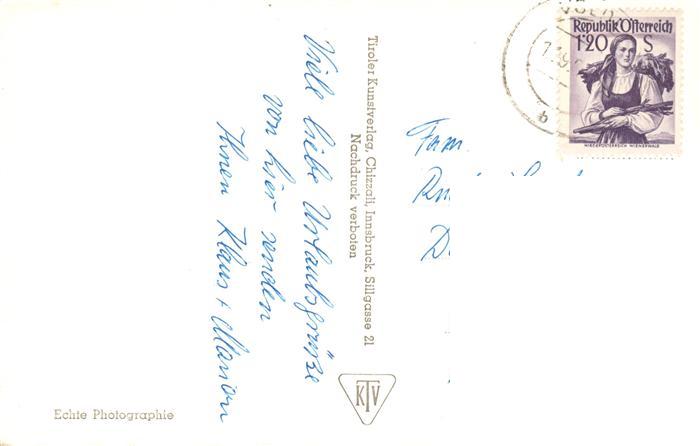 Viele liebe Urlaubsgrüße
von hier senden
Ihnen Klaus + Marion
Tiroler Kunstverlag, Chizzali, Innsbruck, Sillgasse 21
Nachdruck verboten
KTV
Echte Photographie
Fam.
Republik Österreich
1·20 S
NIEDERÖSTERREICH WIENERWALD